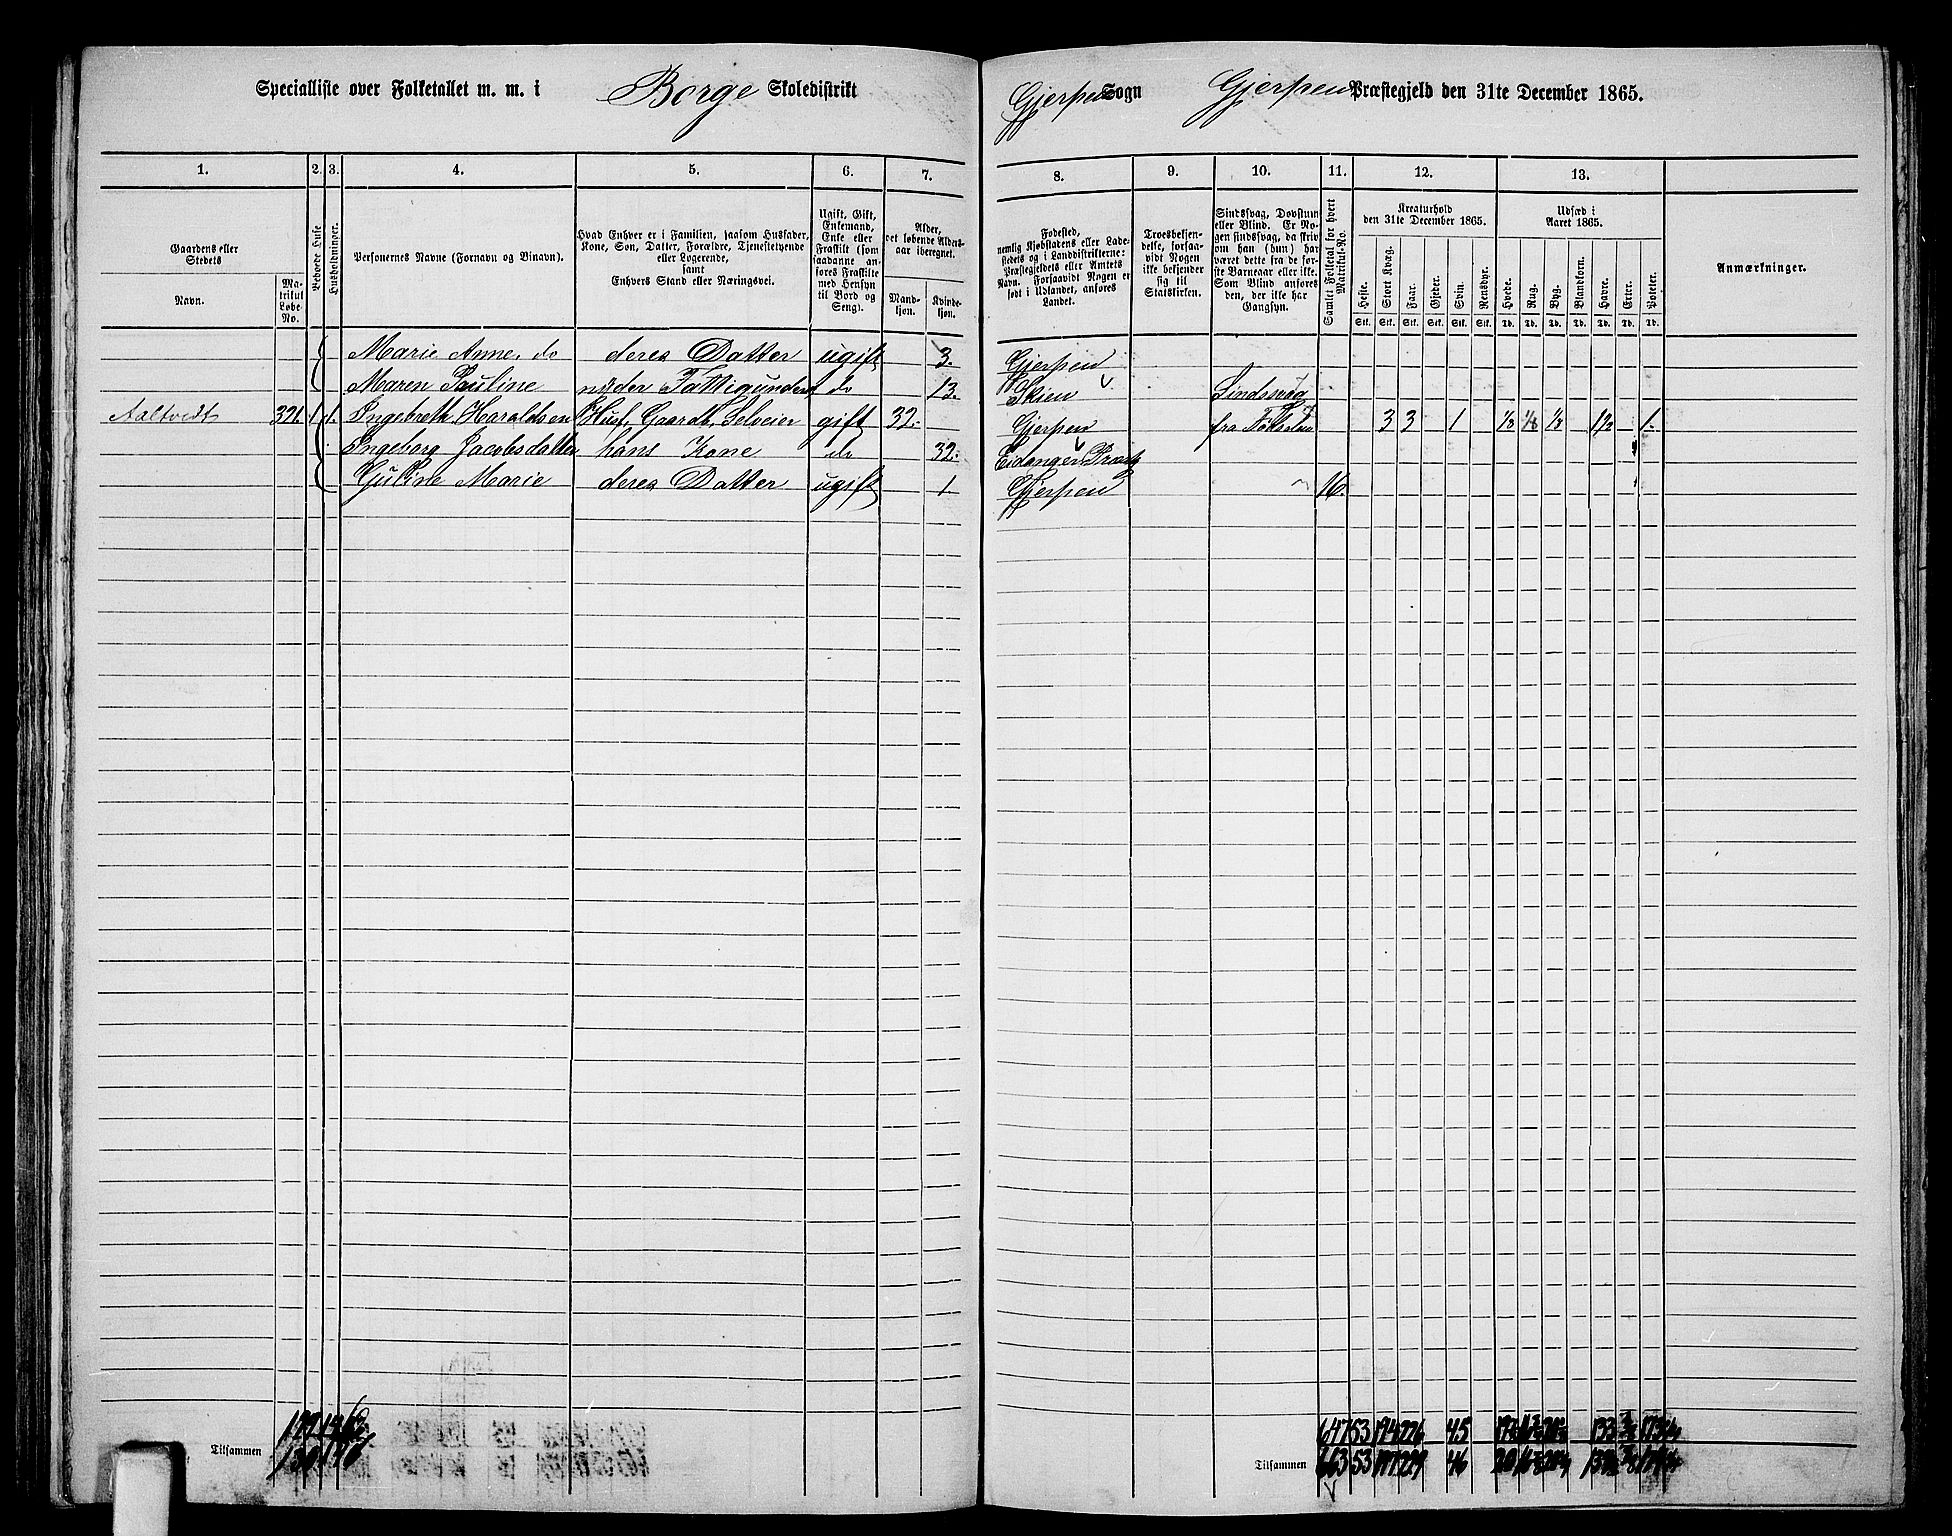 Specialliste over Folketallet m. m. i Borge Skoledistrikt
Gjerpen Sogn Gjerpen Præstegjeld den 31te December 1865.
1. 2. 3. 4. 5. 6. 7.
8. 9. 10. 11. 12. 13.
Gaardens eller Stedets
Navn.
Matrikul Løbe-No.
Beboede Huse
Husholdninger.
Personernes Navne (Fornavn og Binavn).
Hvad Enhver er i Familien, saasom Husfader,
Kone, Søn, Datter, Forældre, Tjenestetyende
eller Logerende,
samt
Enhvers Stand eller Næringsvei.
Ugift, Gift,
Enkemand,
Enke eller
Fraskilt (som
saadanne an-
føres Fraskilte
med Hensyn
til Bord og
Seng).
Alder,
det løbende Alders-
aar iberegnet.
Mand-
kjøn.
Kvinde-
kjøn.
Fødested,
nemlig Kjøbstadens eller Lade-
stedets og i Landdistrikterne:
Præstegjeldets eller Amtets
Navn. Forsaavidt Nogen er
født i Udlandet, anføres
Landet.
Troesbekjen-
delse, forsaa-
vidt Nogen
ikke bekjender
sig til
Statskirken.
Sindssvag, Døvstum
eller Blind. Er No-
gen sindssvag, da skriv
om han (hun) har
været dette fra de før-
ste Barneaar eller ikke.
Som Blind anføres
den, der ikke har
Gangsyn.
Samlet Folketal for hvert
Matrikul-No.
Kreaturhold
den 31te December 1865.
Heste. Stort Kvæg. Faar. Gjeder. Svin. Rensdyr.
Stk. Stk. Stk. Stk. Stk. Stk.
Udsæd i
Aaret 1865.
Hvede. Rug. Byg. Blandkorn. Havre. Erter. Poteter.
Td. Td. Td. Td. Td. Td. Td.
Anmærkninger.
Marie Anne, do deres Datter ugift 3. Gjerpen
Maren Pauline nyder Fattigunderst do 13. Skien Sindssvag
Aaltvedt 321. 1. 1. Ingebreth Haraldsen Husf, Gaardb, Selveier gift 32. Gjerpen 3 3 1 1/8 1/8 1/8 1 1/2 1.
Ingeborg Jacobsdatter hans Kone do 32. Eidanger Præstg
Guline Marie deres Datter ugift 1 Gjerpen 16.
647 53 194 226 45
Tilsammen 130
Tilsammen 663 53 197 229 46